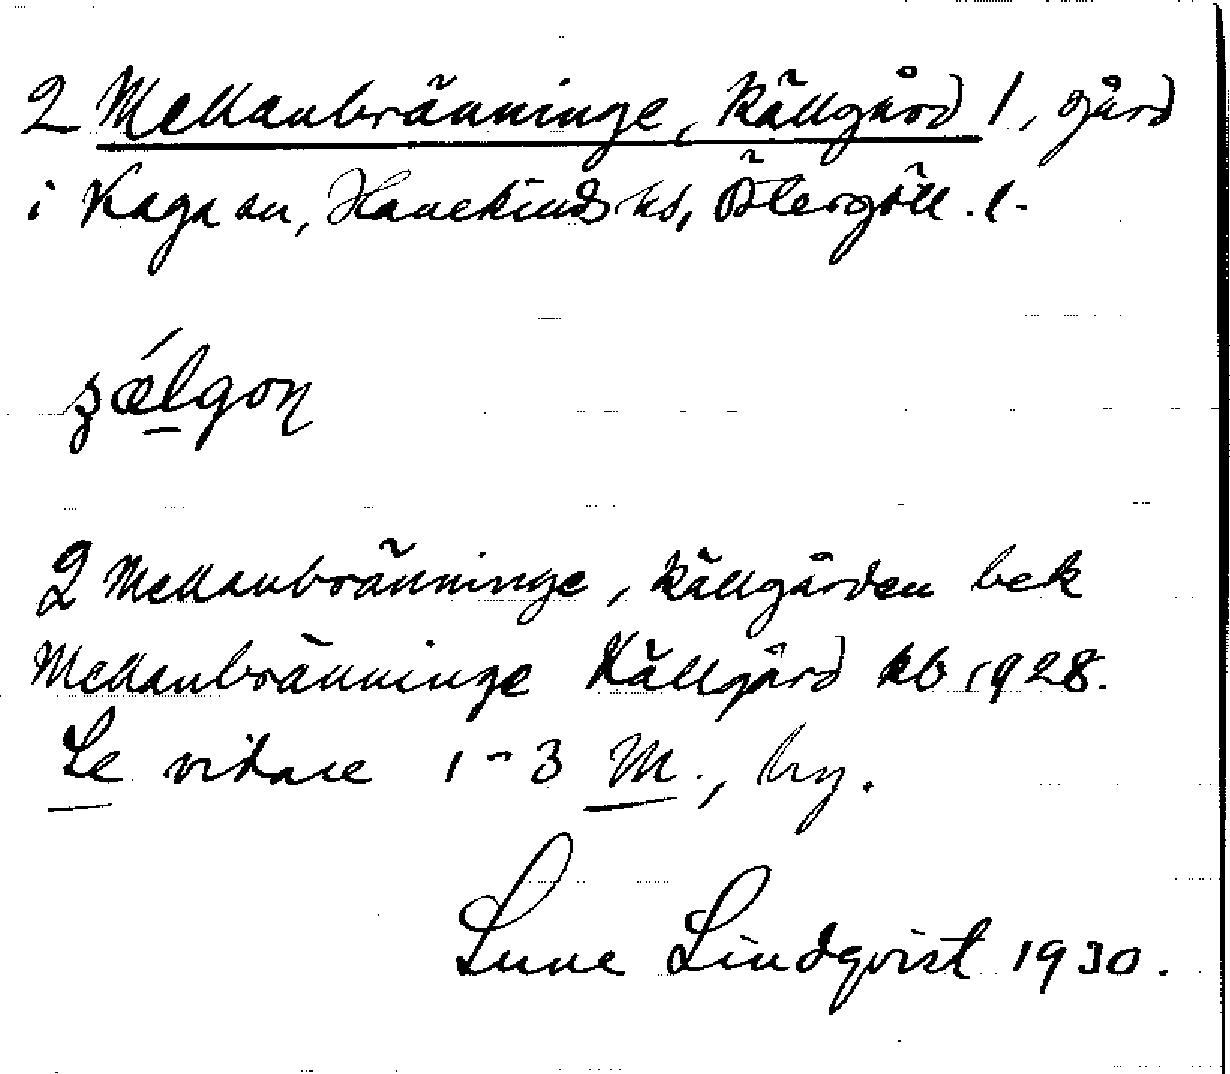 2 Mellanbränninge, Källgård 1, gård
i Kaga sn, Hanekinds hd, Östergötl. l.
2 Mellanbränninge, Källgården bek
Mellanbränninge Källgård kb 1928.
Se vidare 1-3 M., by.
Sune Lindqvist 1930.